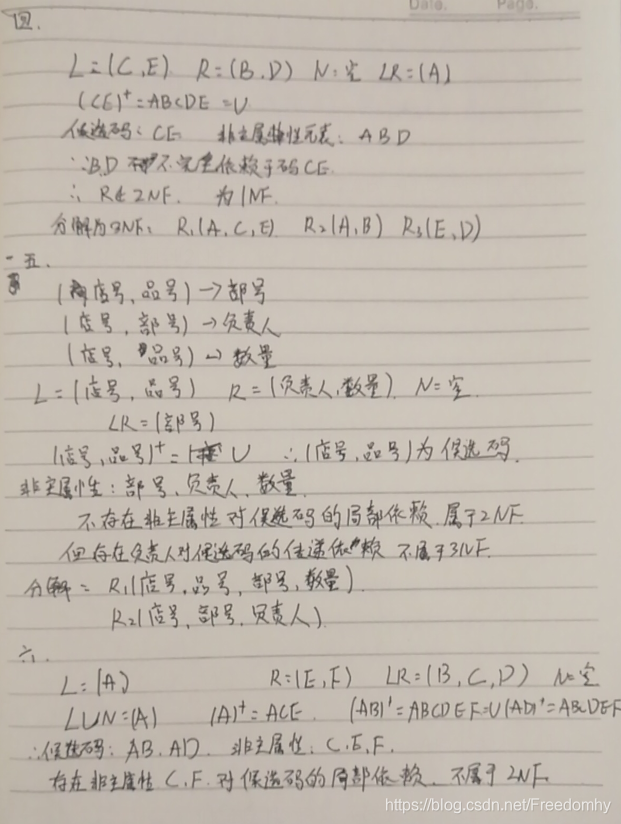 Date. Page.
四.
L=(C,E) R=(B,D) N=空 LR=(A)
(CE)⁺=ABCDE=U
候选码: CE 非主属性元素: ABD
∵B,D 不完全依赖于码CE.
∴ R∉2NF. 为1NF.
分解为3NF: R₁(A,C,E) R₂(A,B) R₃(E,D)
五.
(店号,品号)→部号
(店号,部号)→负责人
(店号,品号)→数量
L=(店号,品号) R=(负责人,数量) N=空
LR=(部号)
(店号,品号)⁺= U ∴(店号,品号)为候选码.
非主属性: 部号,负责人,数量.
不存在非主属性对候选码的局部依赖.属于2NF
但存在负责人对候选码的传递依赖 不属于3NF.
分解= R₁(店号,品号,部号,数量).
R₂(店号,部号,负责人).
六.
L=(A) R=(E,F) LR=(B,C,D) N=空
LUN=(A) (A)⁺=ACE. (AB)⁺=ABCDEF=U (AD)⁺=ABCDEF
∴候选码: AB,AD. 非主属性: C,E,F.
存在非主属性C,F.对候选码的局部依赖.不属于2NF.
https://blog.csdn.net/Freedomhy